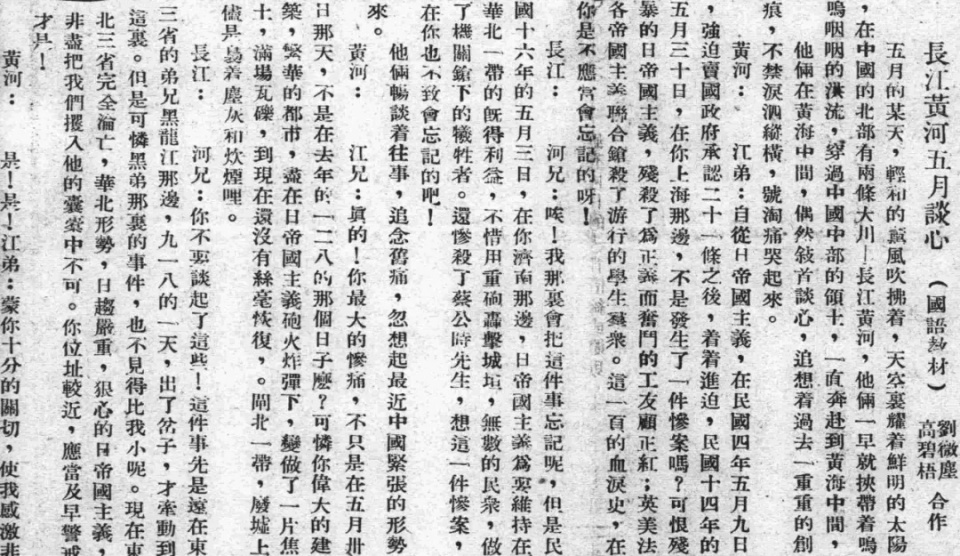 長江黃河五月談心（國語教材）
劉微塵
高碧梧
合作
五月的某天，輕和的薰風吹拂着，天空裏耀着鮮明的太陽
，在中國的北部有兩條大川—長江黃河，他倆一早就挾帶着嗚
嗚咽咽的洪流，穿過中國中部的領土，一直奔赴到黃海中間，
他倆在黃海中間，偶然敍首談心，追想着過去一重重的創
痕，不禁淚泗縱橫，號淘痛哭起來。
黃河：　江弟：自從日帝國主義，在民國四年五月九日
，強迫賣國政府承認二十一條之後，着着進迫，民國十四年的
五月三十日，在你上海那邊，不是發生了一件慘案嗎？可恨殘
暴的日帝國主義，殘殺了爲正義而奮鬥的工友顧正紅；英美法
各帝國主義聯合鎗殺了游行的學生羣衆。這一百的血淚史，在
你是不應當會忘記的呀！
長江：　河兄：唉！我那裏會把這件事忘記呢，但是民
國十六年的五月三日，在你濟南那邊，日帝國主義爲要維持在
華北一帶的旣得利益，不惜用重砲轟擊城垣，無數的民衆，做
了機關鎗下的犧牲者。還慘殺了蔡公時先生，想這一件慘案，
在你也不致會忘記的吧！
他倆暢談着往事，追念舊痛，忽想起最近中國緊張的形勢
來。
黃河：　江兄：眞的！你最大的慘痛，不只是在五月卅
日那天，不是在去年的一二八的那個日子麼？可憐你偉大的建
築，繁華的都市，盡在日帝國主義砲火炸彈下，變做了一片焦
土，滿場瓦礫，到現在還沒有絲毫恢復，。閘北一帶，廢墟上
儘是裊着塵灰和炊煙哩。
長江：　河兄：你不要談起了這些！這件事先是遠在東
三省的弟兄黑龍江那邊，九一八的一天，出了岔子，才牽動到
這裏。但是可憐黑弟那裏的事件，也不見得比我小呢。現在東
北三省完全淪亡，華北形勢，日趨嚴重，狠心的日帝國主義，
非盡把我們攫入他的囊橐中不可。你位址較近，應當及早警戒
才是！
黃河：　是！是！江弟：蒙你十分的關切，使我感激非